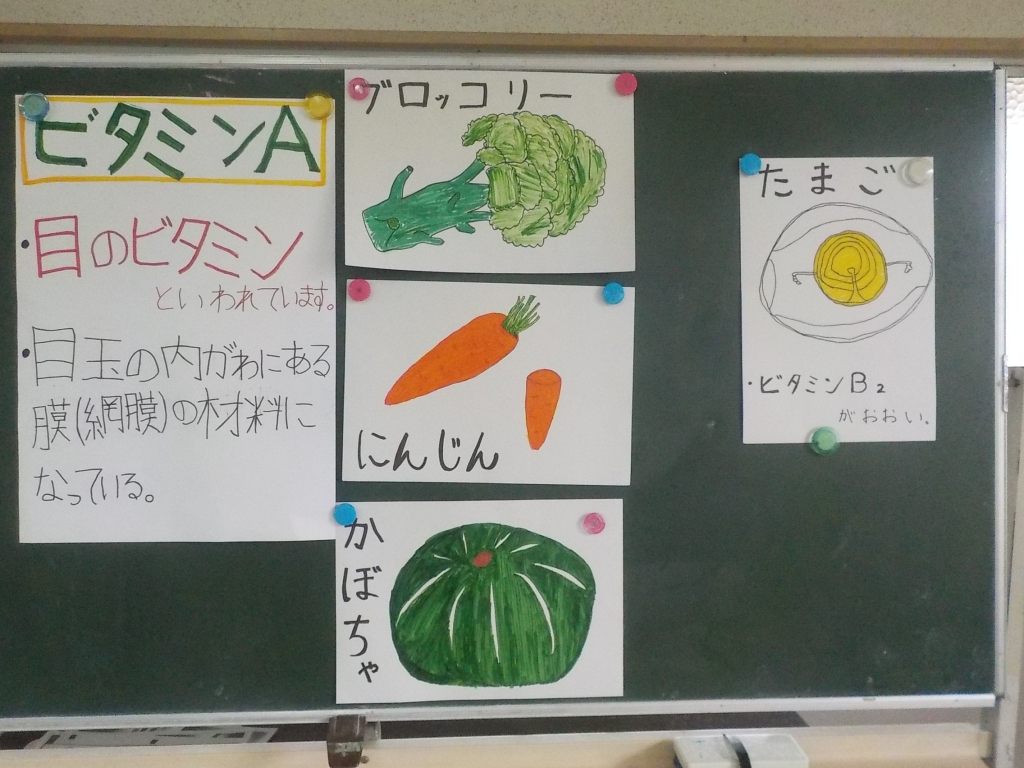 ビタミンA
・目のビタミン
といわれています。
・目玉の内がわにある
膜(網膜)の材料に
なっている。
ブロッコリー
にんじん
かぼちゃ
たまご
・ビタミンB2
がおおい。